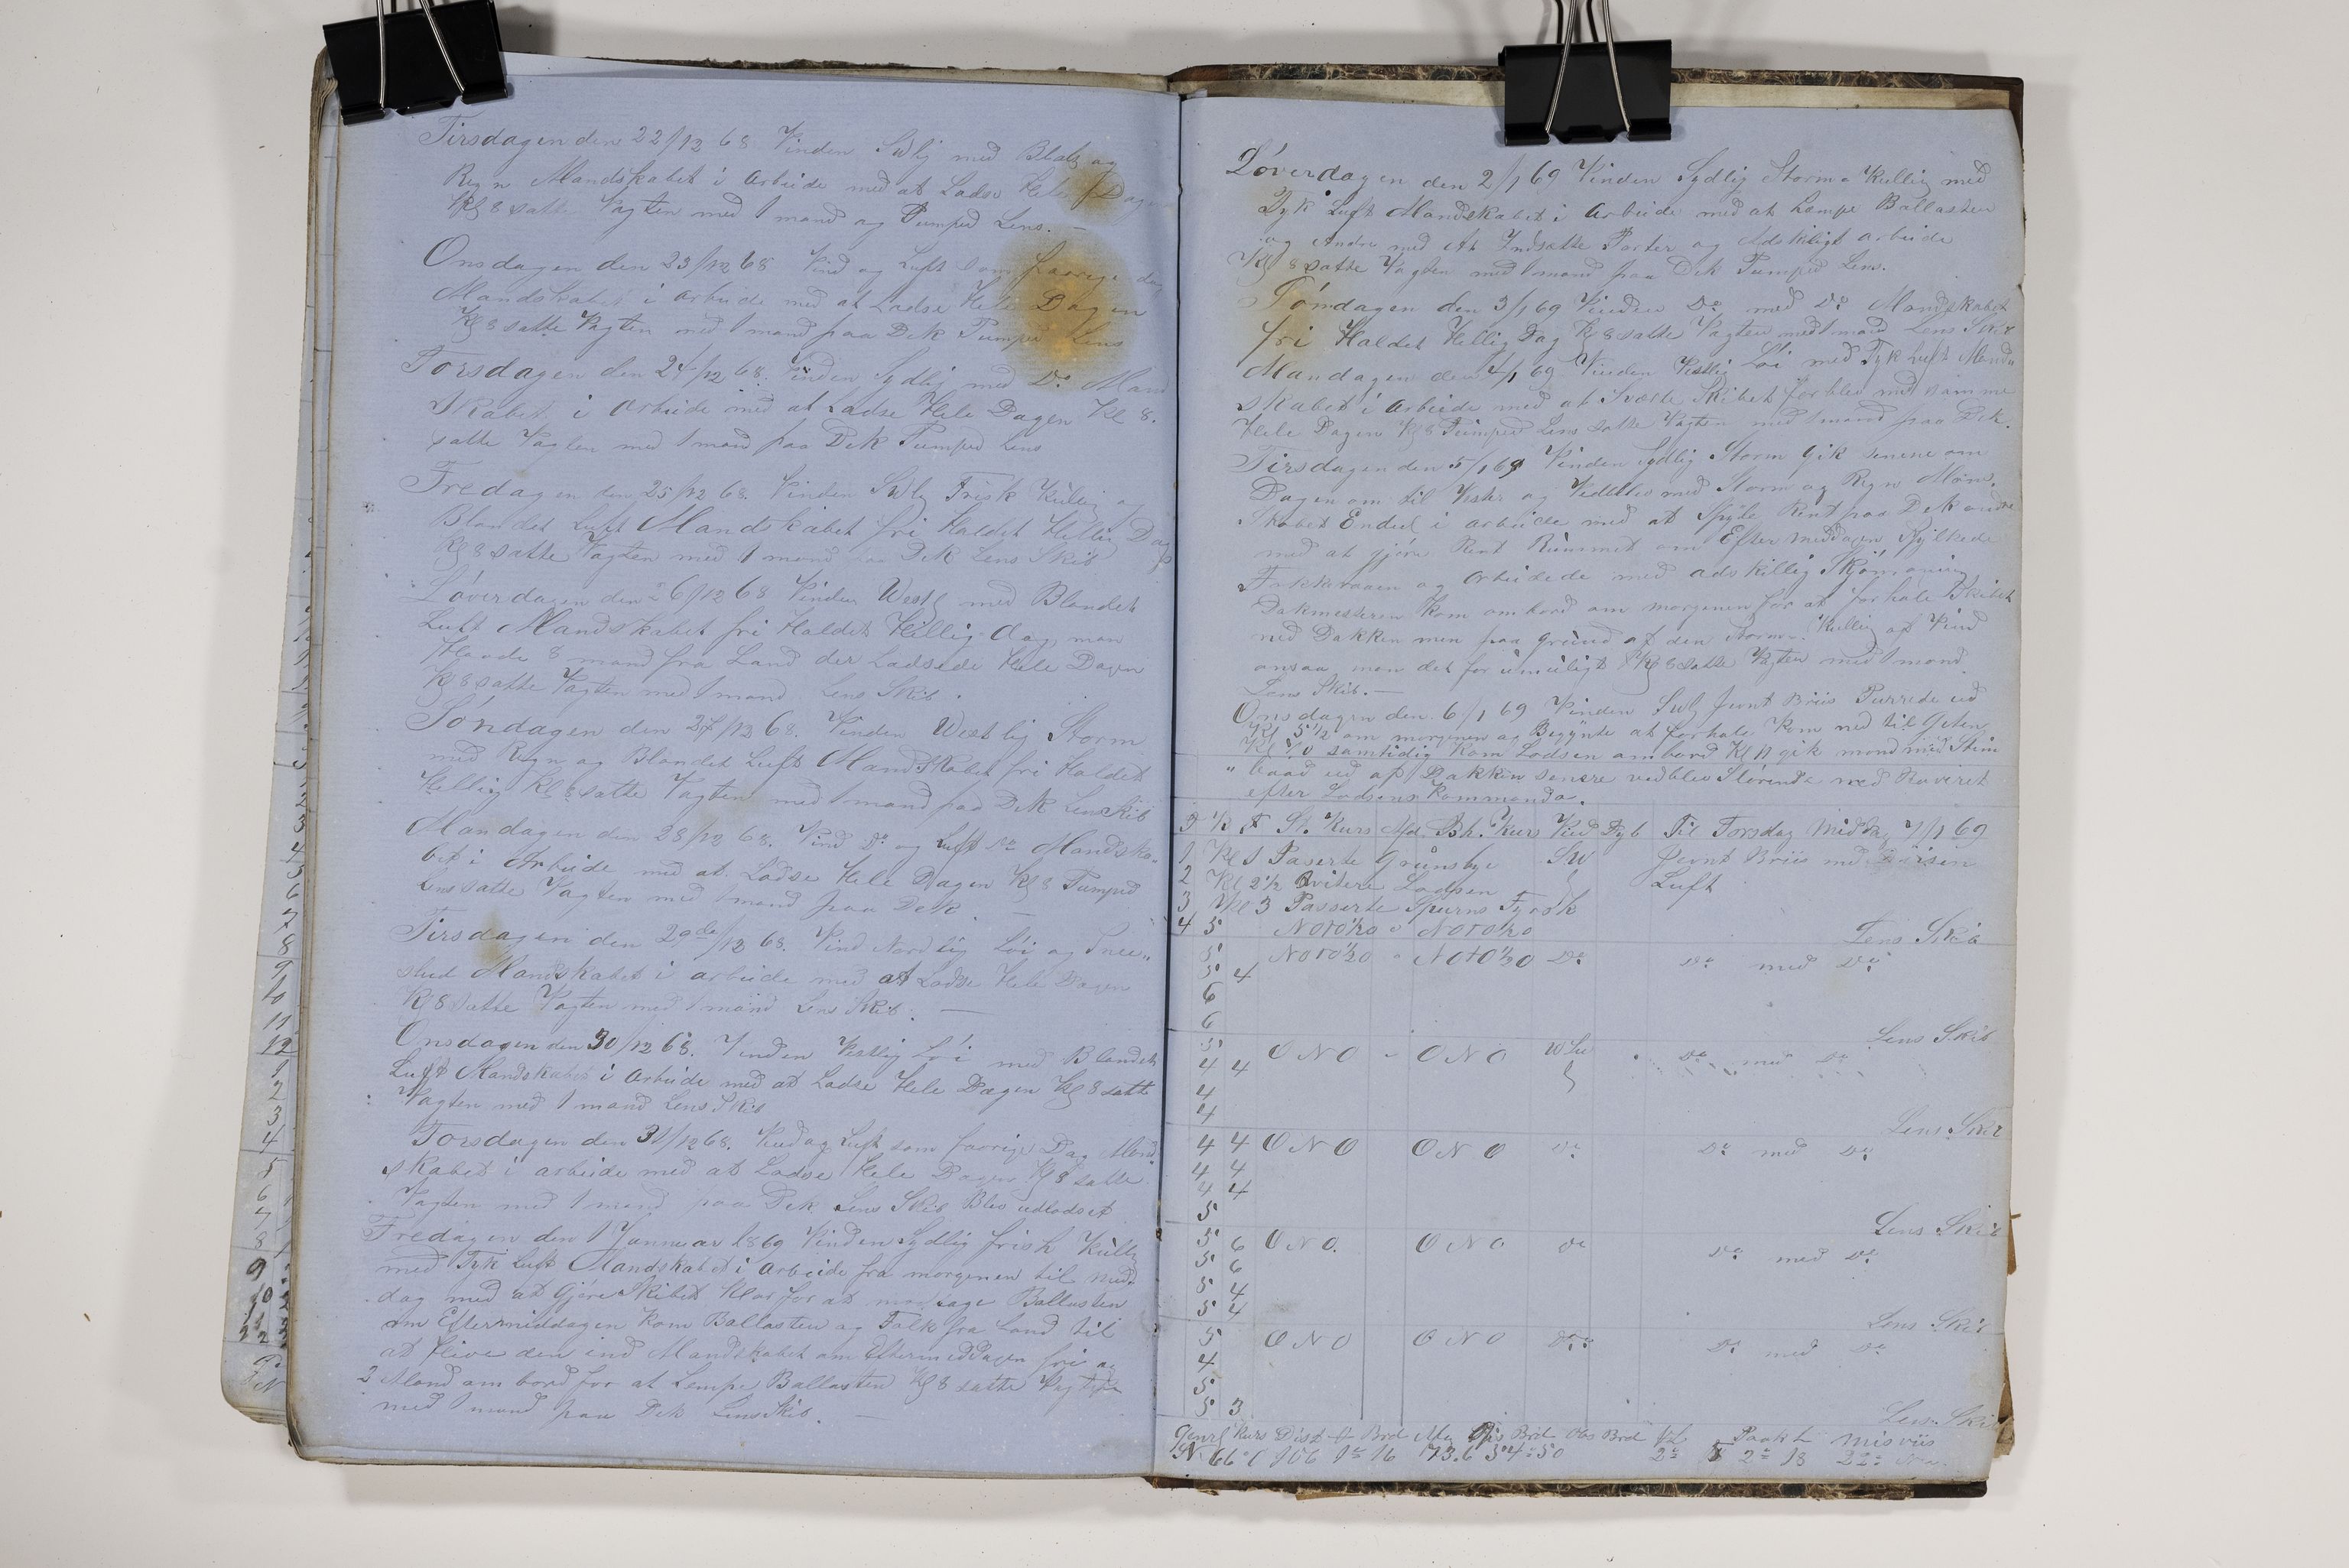 Tirsdagen den 22/12 68 Vinden Swlig med Bladt og
Regn Mandskabet i Arbeide med at Ladse Hele Dagen
Kl 8 satte Vagten med 1 mand og Pumped Lens. —
Onsdagen den 23/12 68 Vind og Luft som faarige dag
Mandskabet i Arbeide med at Ladse Hele Dagen
Kl 8 satte Vagten med 1 mand paa Dek Pumped Lens
Torsdagen den 24/12 68. Vinden Sydlig med Do Mand
skabet i Arbeide med at Ladse Hele Dagen Kl 8.
satte Vagten med 1 mand paa Dek Pumped Lens
Fredagen den 25/12 68. Vinden Swlg Frisk Kullig og
Blandet Luft Mandskabet fri Haldet Hellig Dag
Kl 8 satte Vagten med 1 mand paa Dek Lens Skib
Löverdagen den 26/12 68 Vinden Westl med Blandet
Luft Mandskabet fri Haldet Hellig dag, man
Havde 8 mand fra Land der Ladsede Hele Dagen
Kl 8 satte Vagten med 1 mand Lens Skib.
Söndagen den 27/12 68. Vinden Westlig Storm
med Regn og Blandet Luft Mandskabet fri Haldet
Hellig Kl 8 satte Vagten med 1 mand paa Dek Lens Skib
Mandagen den 28/12 68. Vind Do og Luft Do Mandska-
bet i Arbeide med at Ladse Hele Dagen Kl 8 Pumped
Lens satte Vagten med 1 mand paa Dek. —
Tirsdagen den 29de/12 68. Vind Nordlig Löi og Snee-
slud Mandskabet i arbeide med at Ladse Hele Dagen
Kl 8 satte Vagten med 1 mand Lens Skib. —
Onsdagen den 30/12 68. Vinden Vestlig Löi med Blandet
Luft Mandskabet i Arbeide med at Ladse Hele Dagen Kl 8 satte
Vagten med 1 mand Lens Skib
Torsdagen den 31/12 68. Vind og Luft som faarige Dag Mand
skabet i arbeide med at Ladse Hele Dagen Kl 8 satte
Vagten med 1 mand paa Dek Lens Skib Blev udladset
Fredagen den 1 Januar 1869 Vinden Sydlig frish Kullig
med Tyk Luft Mandskabet i Arbeide fra morgenen til mid-
dag med at Gjöre Skibet Klar for at modtage Ballasten
om Eftermiddagen kom Ballasten og Folk fra Land til
at hive den ind Mandskabet om Eftermiddagen fri og
2 Mand om bord for at Lempe Ballasten Kl 8 satte Vagten
med 1 mand paa Dek Lens Skib. —
Löverdagen den 2/1 69 Vinden Sydlig Storm - Kullig med
Tyk Luft Mandskabet i Arbeide med at Lempe Ballasten
og Andre med At Indsætte Porter og Adskiligt arbeide
Kl 8 satte Vagten med 1 mand paa Dek Pumped Lens.
Söndagen den 3/1 69 Vinden Do med Do Mandskabet
fri Haldet Hellig Dag Kl 8 satte Vagten med 1 mand Lens Skib
Mandagen den 4/1 69 Vinden Vestlig Löi med Tyk Luft Mand-
skabet i Arbeide med at Svælle Skibet forblev med samme
Hele Dagen Kl 8 Pumped Lens satte Vagten med 1 mand paa Dek.
Tirsdagen den 5/1 69 Vinden Sydlig Storm Gik senere om
Dagen om til Vester og Vedblev med Storm og Regn Mand-
skabet Endeel i arbeide med at Spyle Rent paa Dek andre
med at gjöre Rent Rummet om Eftermeddagen
Fokkeraaen og Arbeidede med adskillig Skjömaning
Dakmesteren kom ombord om morgenen for at forhale Skibet
ned Dakken men paa Grund af den Storm- Kullig af Vind
ansaa man det for umuligt Kl 8 satte Vagten med 1 mand
Lens Skib. —
Onsdagen den 6/1 69 Vinden Swl Jevnt Briis Purrede ud
Kl 5 1/2 om morgenen og Begynte at forhale kom ned til Geten
Kl 10 samtidig kom Lodsen ombord Kl 11 gik mand med Stim
baad ud af Dakken senere vedblev Storende med Raveret
efter Lodsens Kommando.
D K F St. Kurs Afd Bh. Kurs Vind Dyb Til Torsdag Middag 7/1 69
1 Kl 1 Paserte Grimsbye Sw Jevnt Briis med Diisen
2 Kl 2 1/2 Qvitere Lodsen Luft
3 Kl 3 Passerte Spurns Fyrsk
4 5 NOtO1/2O " NOtO1/2O Lens Skib
5 NOtO1/2O " NOtO1/2O Do Do med Do
5 4
6
6 Lens Skib
5 ONO - ONO WSw Do med Do
4 4
4
4 Lens Skib
4 4 ONO ONO Do Do med Do
4 4
4 4
5 Lens Skib
5 6 ONO. ONO Do Do med Do
5 6
5 4
5 4 Lens Skib
5 ONO ONO Do: Do med Do
4
5
5 3 Lens Skib
Genrl Kurs Dist fr Brd Afv Obs Brd Paak L Misviis
N 66° O 106 1° 16 73.6 54°50 2° 2° 18 22°